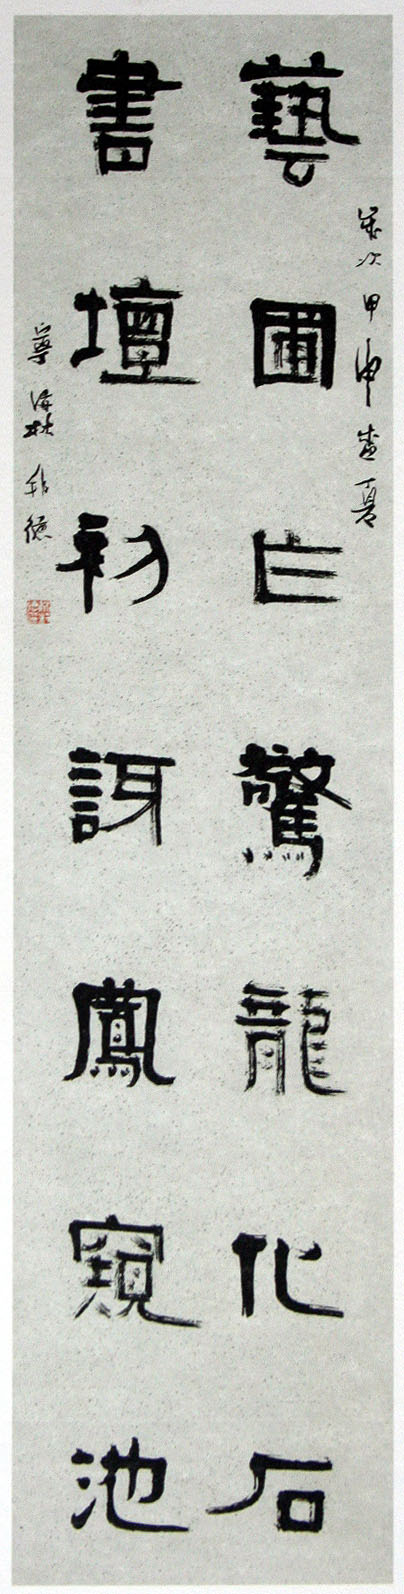 歲次甲申夏
藝圃乍驚龍化石
書壇初訝鳳窺池
寧海林邦德